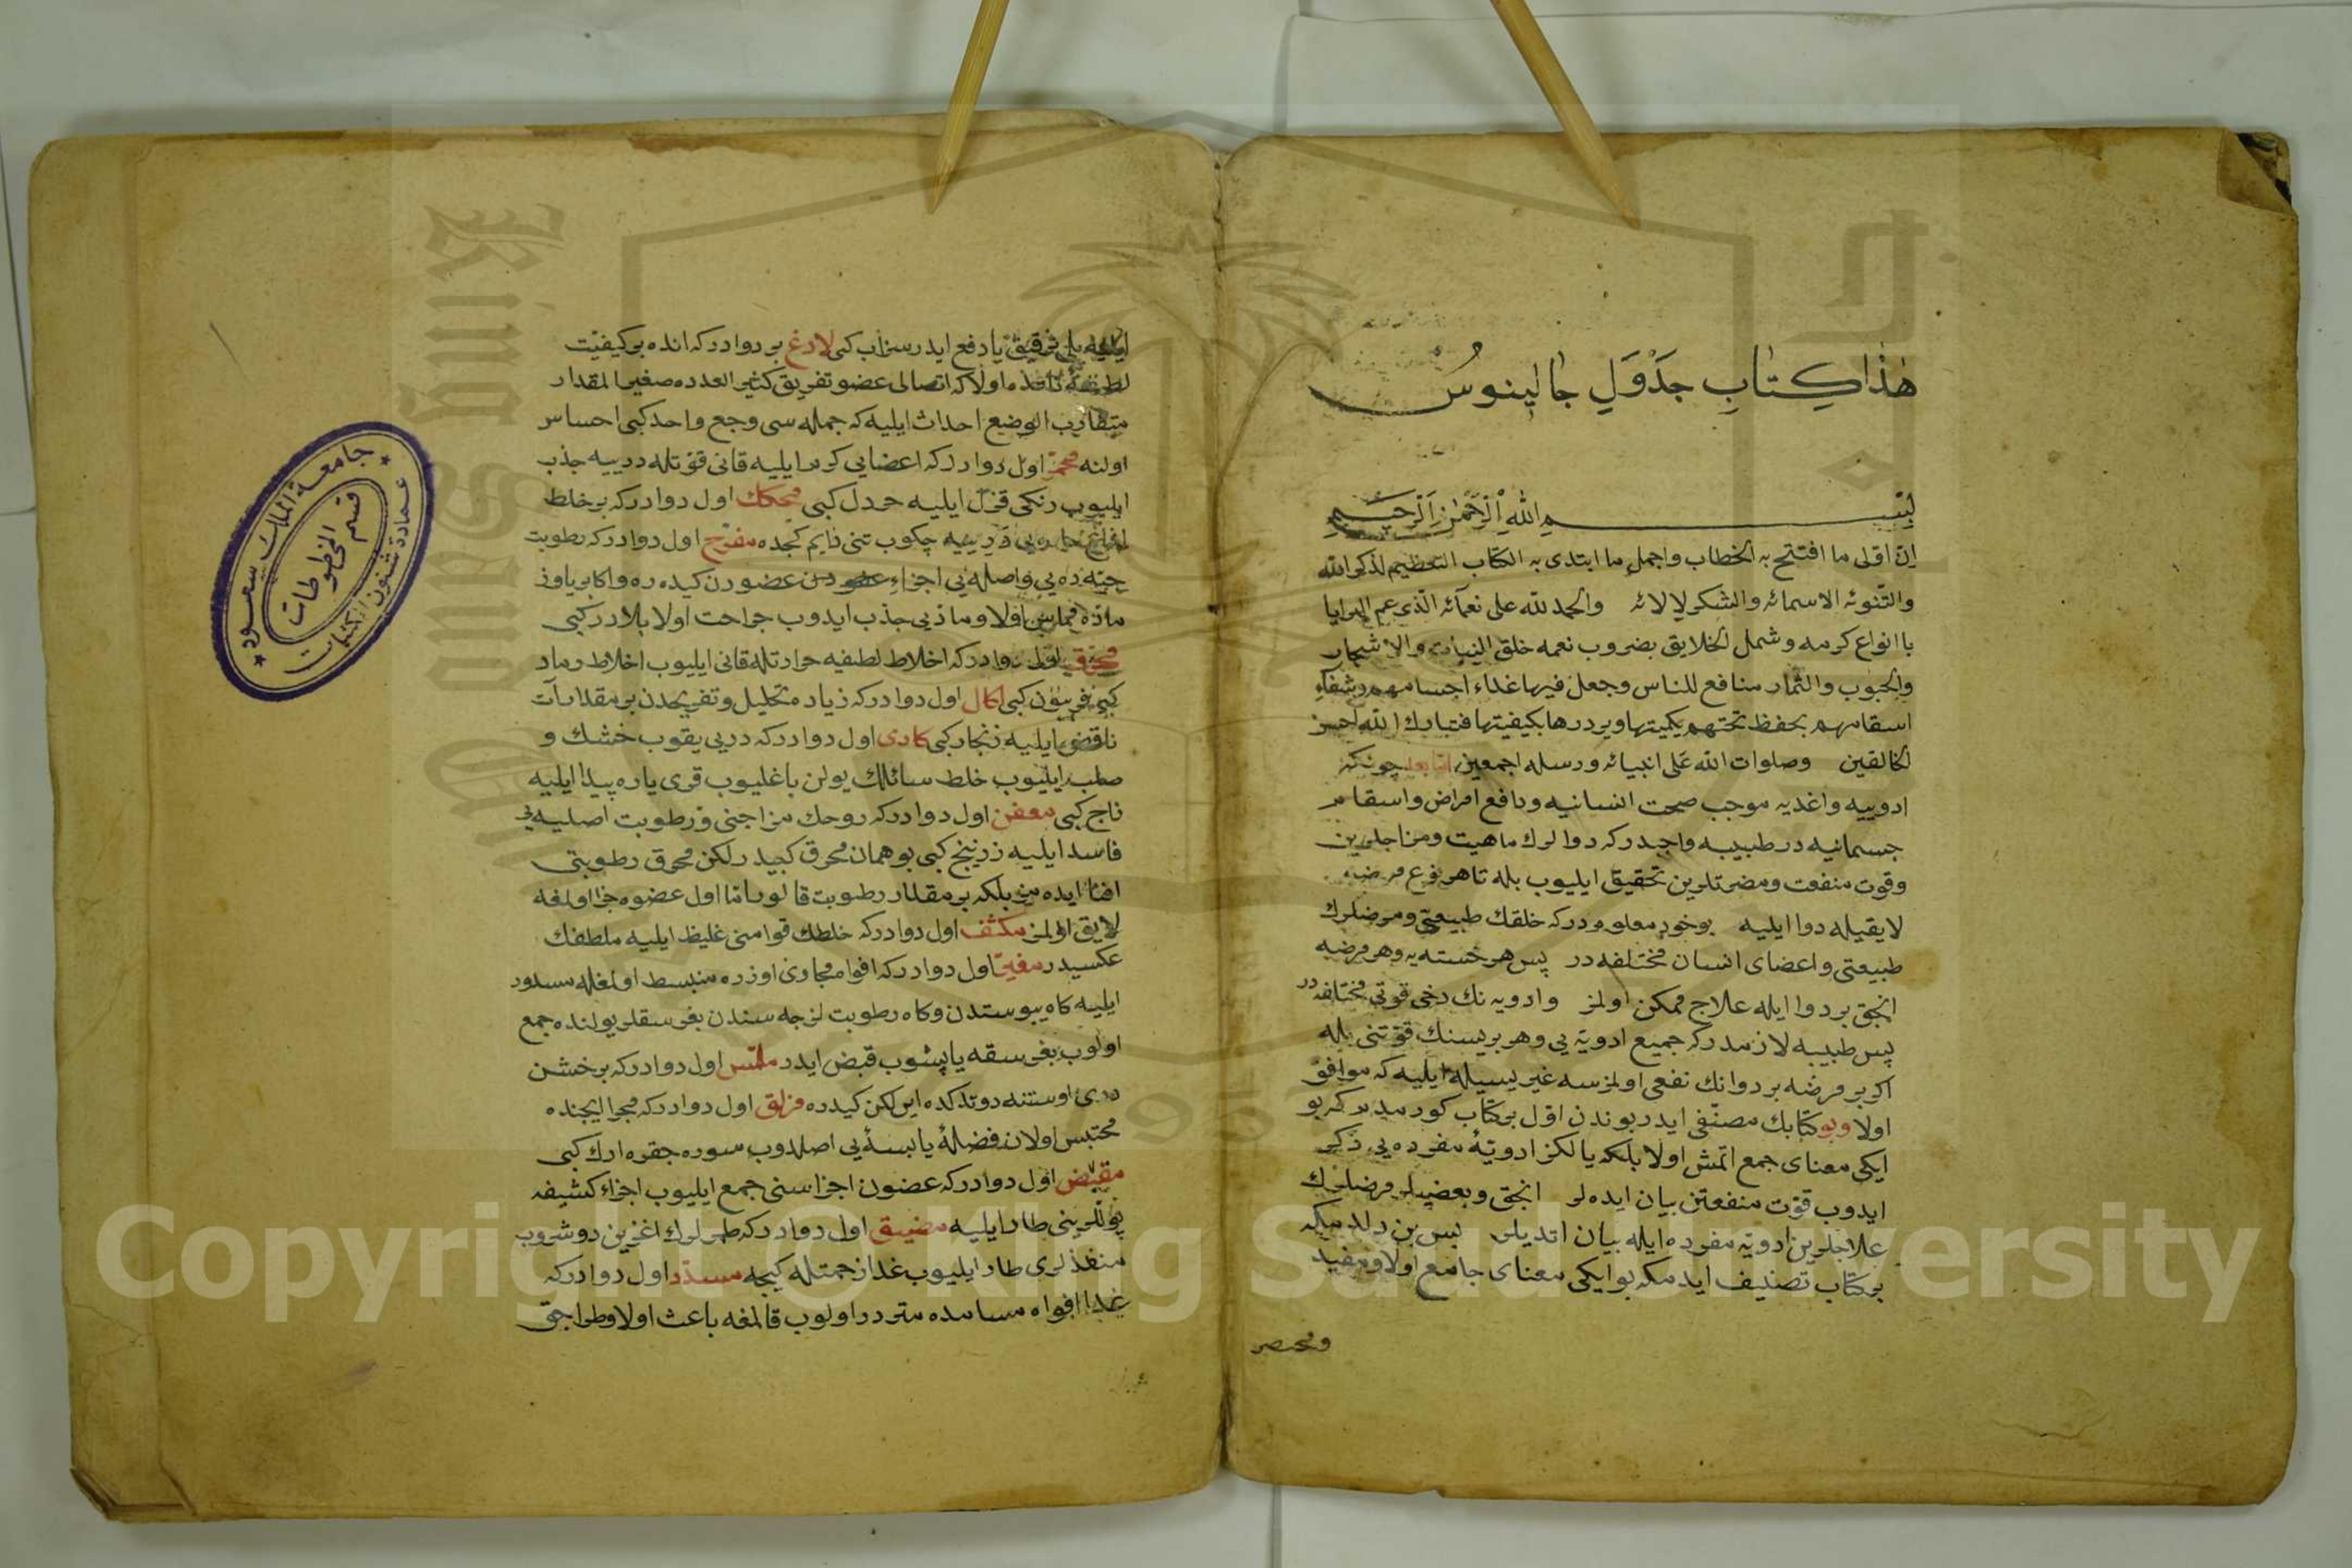 هذا كتاب جدول جالينوس
بسم الله الرحمن الرحيم
ان اولى ما افتتح به الخطاب واجمل ما ابتدى به الكتاب التعظيم لذكر الله
والتنوئه الاسمائه والشكر لالائه والحمد لله على نعمآئه الذى عم البرايا
با انواع كرمه وشمل الخلايق بضروب نعمه خلق النباتات والاشجار
والحبوب والثمار منافع للناس وجعل فيها غداء اجسامهم وشفاء
اسقامهم بحفظ تحتهم بكيتها ويردرها بكيفيتها فتبارك الله احسن
الخالقين وصلوات الله على انبيائه ورسله اجمعين اما بعد چونكه
ادوييه واغديه موجب صحت انسانيه ودافع امراض واسقام
جسمانيه در طبيبه واجبدركه دوالرك ماهيت ومزاجلرين
وقوت منفعت ومضرتلرين تحقيق ايليوب بله تا هر نوع مرضه
لايقيله دوا ايليه بوخود معلومدركه خلقك طبيعتى ومرضلرك
طبيعتى واعضاى انسان مختلفه در پس هر خسته يه وهر مرضه
انجق بر دوا ايله علاج ممكن اولمز وادويه نك دخى قوتى مختلفه در
پس طبيبه لازمدركه جميع ادويه يى وهر بريسنك قوتنى بله
اكر بر مرضه بر دوانك نفعى اولمزسه غيريسيله ايليه كه موافق
اولا وبو كتابك مصنفى ايدر بوندن اول بر كتاب كورمدم كه بو
ايكى معناى جمع اتمش اولا بلكه يالكز ادويۀ مفرده يى ذكر
ايدوب قوت منفعتن بيان ايده لر انجق وبعضيلر مرضلرك
علاجلرين ادويه مفرده ايله بيان اتديلر پس بن دلدمكه
بر كتاب تصنيف ايدمكه بو ايكى معناى جامع اولا ومفيد
ومختصر
يا دفع ايدر سزاب كبى لادغ بر دوادركه انده بر كيفيت
اولا كه اتصالى عضو تفريق كثير العدده صغير المقدار
متقارب الوضع احداث ايليه كه جمله سى وجع واحد كبى احساس
اولنه محمر اول دوادركه اعضايى كرم ايليه قانى قوتله درييه جذب
ايليوب رنكى قزل ايليه خردل كبى محكك اول دوادركه بر خلط
چكوب تنى كجده مقرح اول دوادركه رطوبت
اجزاء عضودن عضودن كيده ره واكا برياوز
ماده يى جذب ايدوب جراحت اولا بلادر كبى
محرق اول دوادركه اخلاط لطيفه حرارتله قانى ايليوب اخلاط رماد
كبى فربيون كبى اكال اول دوادركه زياده تحليل وتفريحدن بر مقدار آت
ناقض ايليه زنجار كبى كاوى اول دوادركه دريى يقوب خشك و
صلب ايليوب خلط سائلك يولن باغليوب قرى ياره پيدا ايليه
زاج كبى معفن اول دوادركه روحك مزاجنى ورطوبت اصليه يى
فاسد ايليه زرنيخ كبى بو همان محرق كبيدر لكن محرق رطوبتى
افنا ايده مز بلكه بر مقدار رطوبت قالور اما اول عضوه جزا اولمغه
لايق اولمز مكثف اول دوادركه خلطك قوامنى غليظ ايليه ملطفك
عكسيدر مغرى اول دوادركه افواه مجارى اوزره منبسط اولمغله مسدود
ايليه كاه يبوستدن وكاه رطوبت لزجه سندن بغرسقلر يولنده جمع
اولوب بغرسقه ياپشوب قبض ايدر ملمس اول دوادركه بر خشن
درى اوستنه مزلق اول دوادركه مجرا ايچنده
محتبس اولان فضلۀ يابسۀ يى اصلدوب سوره جقره ارك كبى
مقبض اول دوادركه عضون اجزاسنى جمع ايليوب اجزاء كشيفه
يوللرينى طار ايليه مضيق اول دوادركه طمرلرك اغزين دوشروب
منفذلرى طار ايليوب غدا زحمتله كيجه مسدد اول دوادركه
غدا افواه مسامده متردد اولوب قالمغه باعث اولا وطراجق
جامعة الملك سعود
قسم المخطوطات
عمادة شئون المكتبات
Copyright © King Saud University